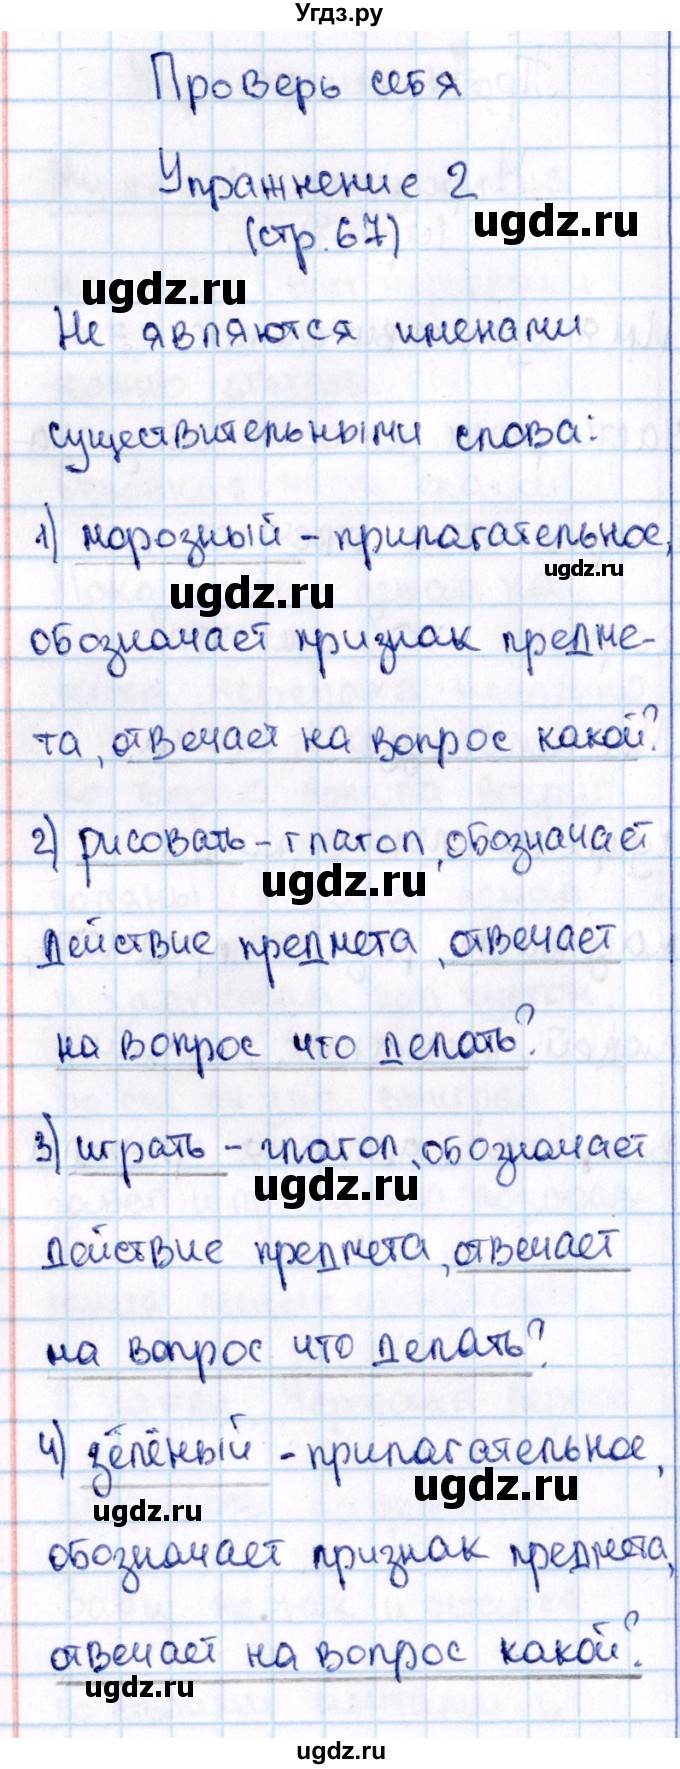 Угдз.ру
Проверь себя
Упражнение 2
ugdz.ru
(стр. 67)
ugdz.ru
Не являются именами
существительными слова:
1) морозный - прилагательное,
ugdz.ru
ugdz.ru
обозначает признак предме-
та, отвечает на вопрос какой?
2) рисовать - глагол, обозначает
ugdz.ru
действие предмета, отвечает
на вопрос что делать?
3) играть - глагол, обозначает
ugdz.ru
действие предмета, отвечает
на вопрос что делать?
4) зелёный - прилагательное,
ugdz.ru
ugdz.ru
обозначает признак предмета,
отвечает на вопрос какой?
ugdz.ru
ugdz.ru